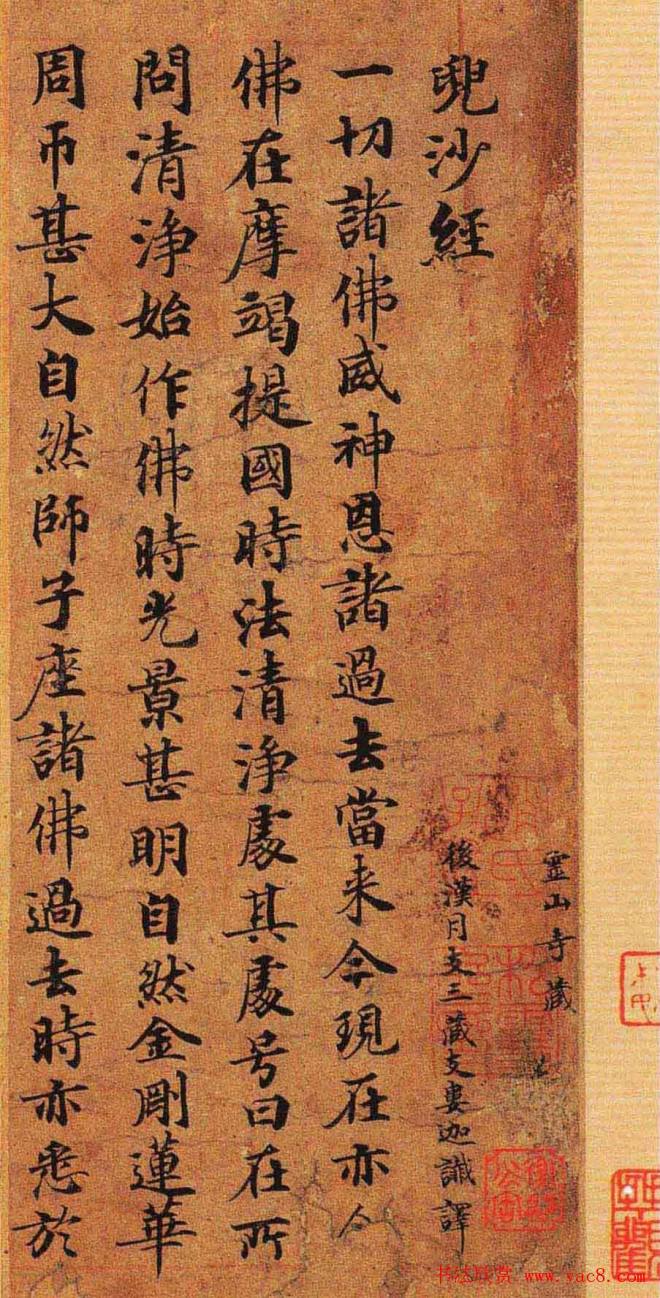 靈山寺藏
兜沙經
後漢月支三藏支婁迦讖譯
一切諸佛威神恩諸過去當来今現在亦
佛在摩竭提國時法清淨處其處号曰在所
問清淨始作佛時光景甚明自然金剛蓮華
周帀甚大自然師子座諸佛過去時亦悉於
书法欣赏 www.yac8.com